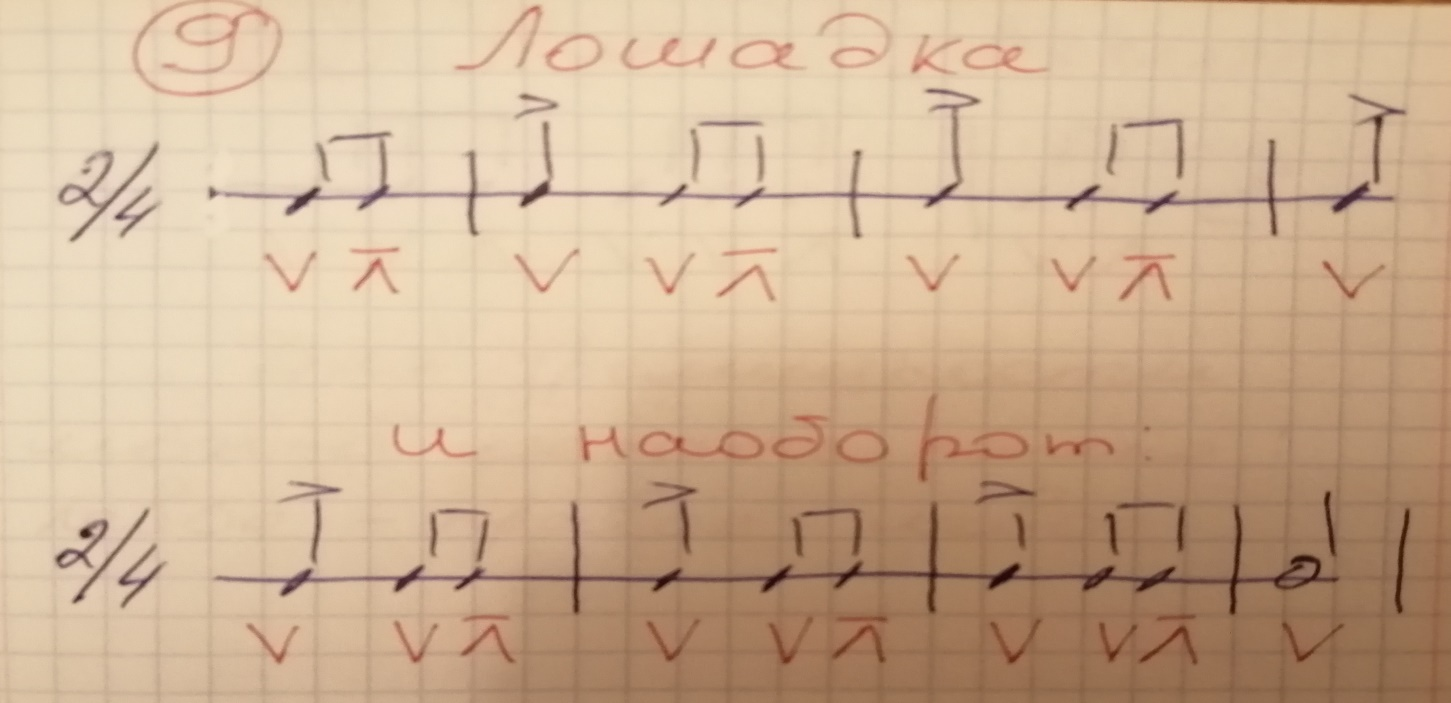 9 Лошадка
2/4
V V V V V V V
и наоборот:
2/4
V V V V V V V